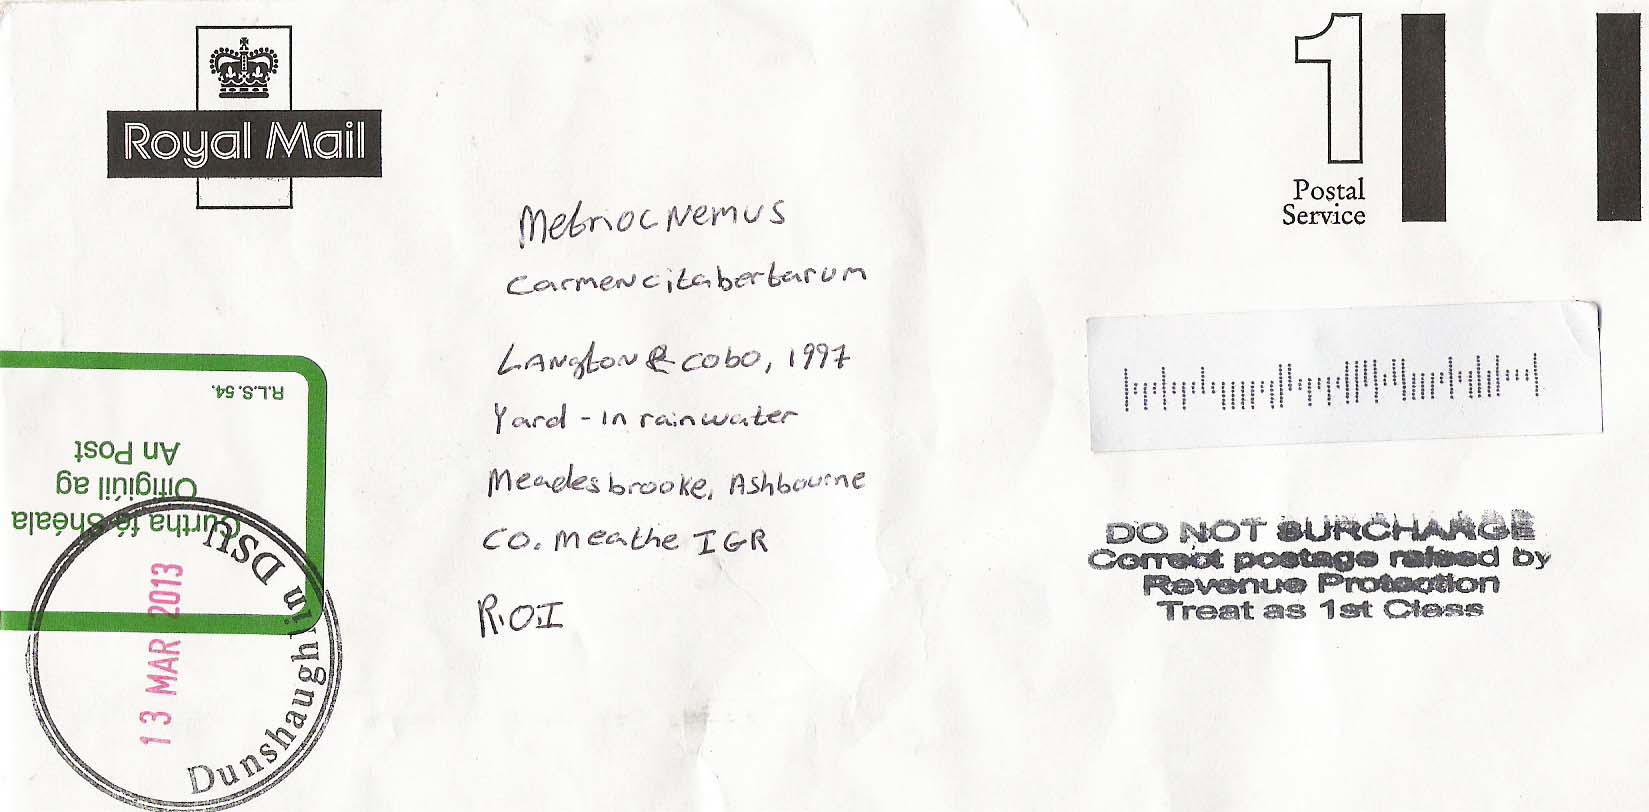 Royal Mail
1
Postal
Service
Metriocnemus
Carmencitabertarum
Langton & Cobo, 1997
Yard - in rainwater
Meadesbrooke, Ashbourne
Co. Meathe IGR
R.O.I
R.L.S. 54.
Curtha fé Shéala
Oifigiúil ag
An Post
Dunshaughlin DSU
13 MAR 2013
DO NOT SURCHARGE
Correct postage raised by
Revenue Protection
Treat as 1st Class